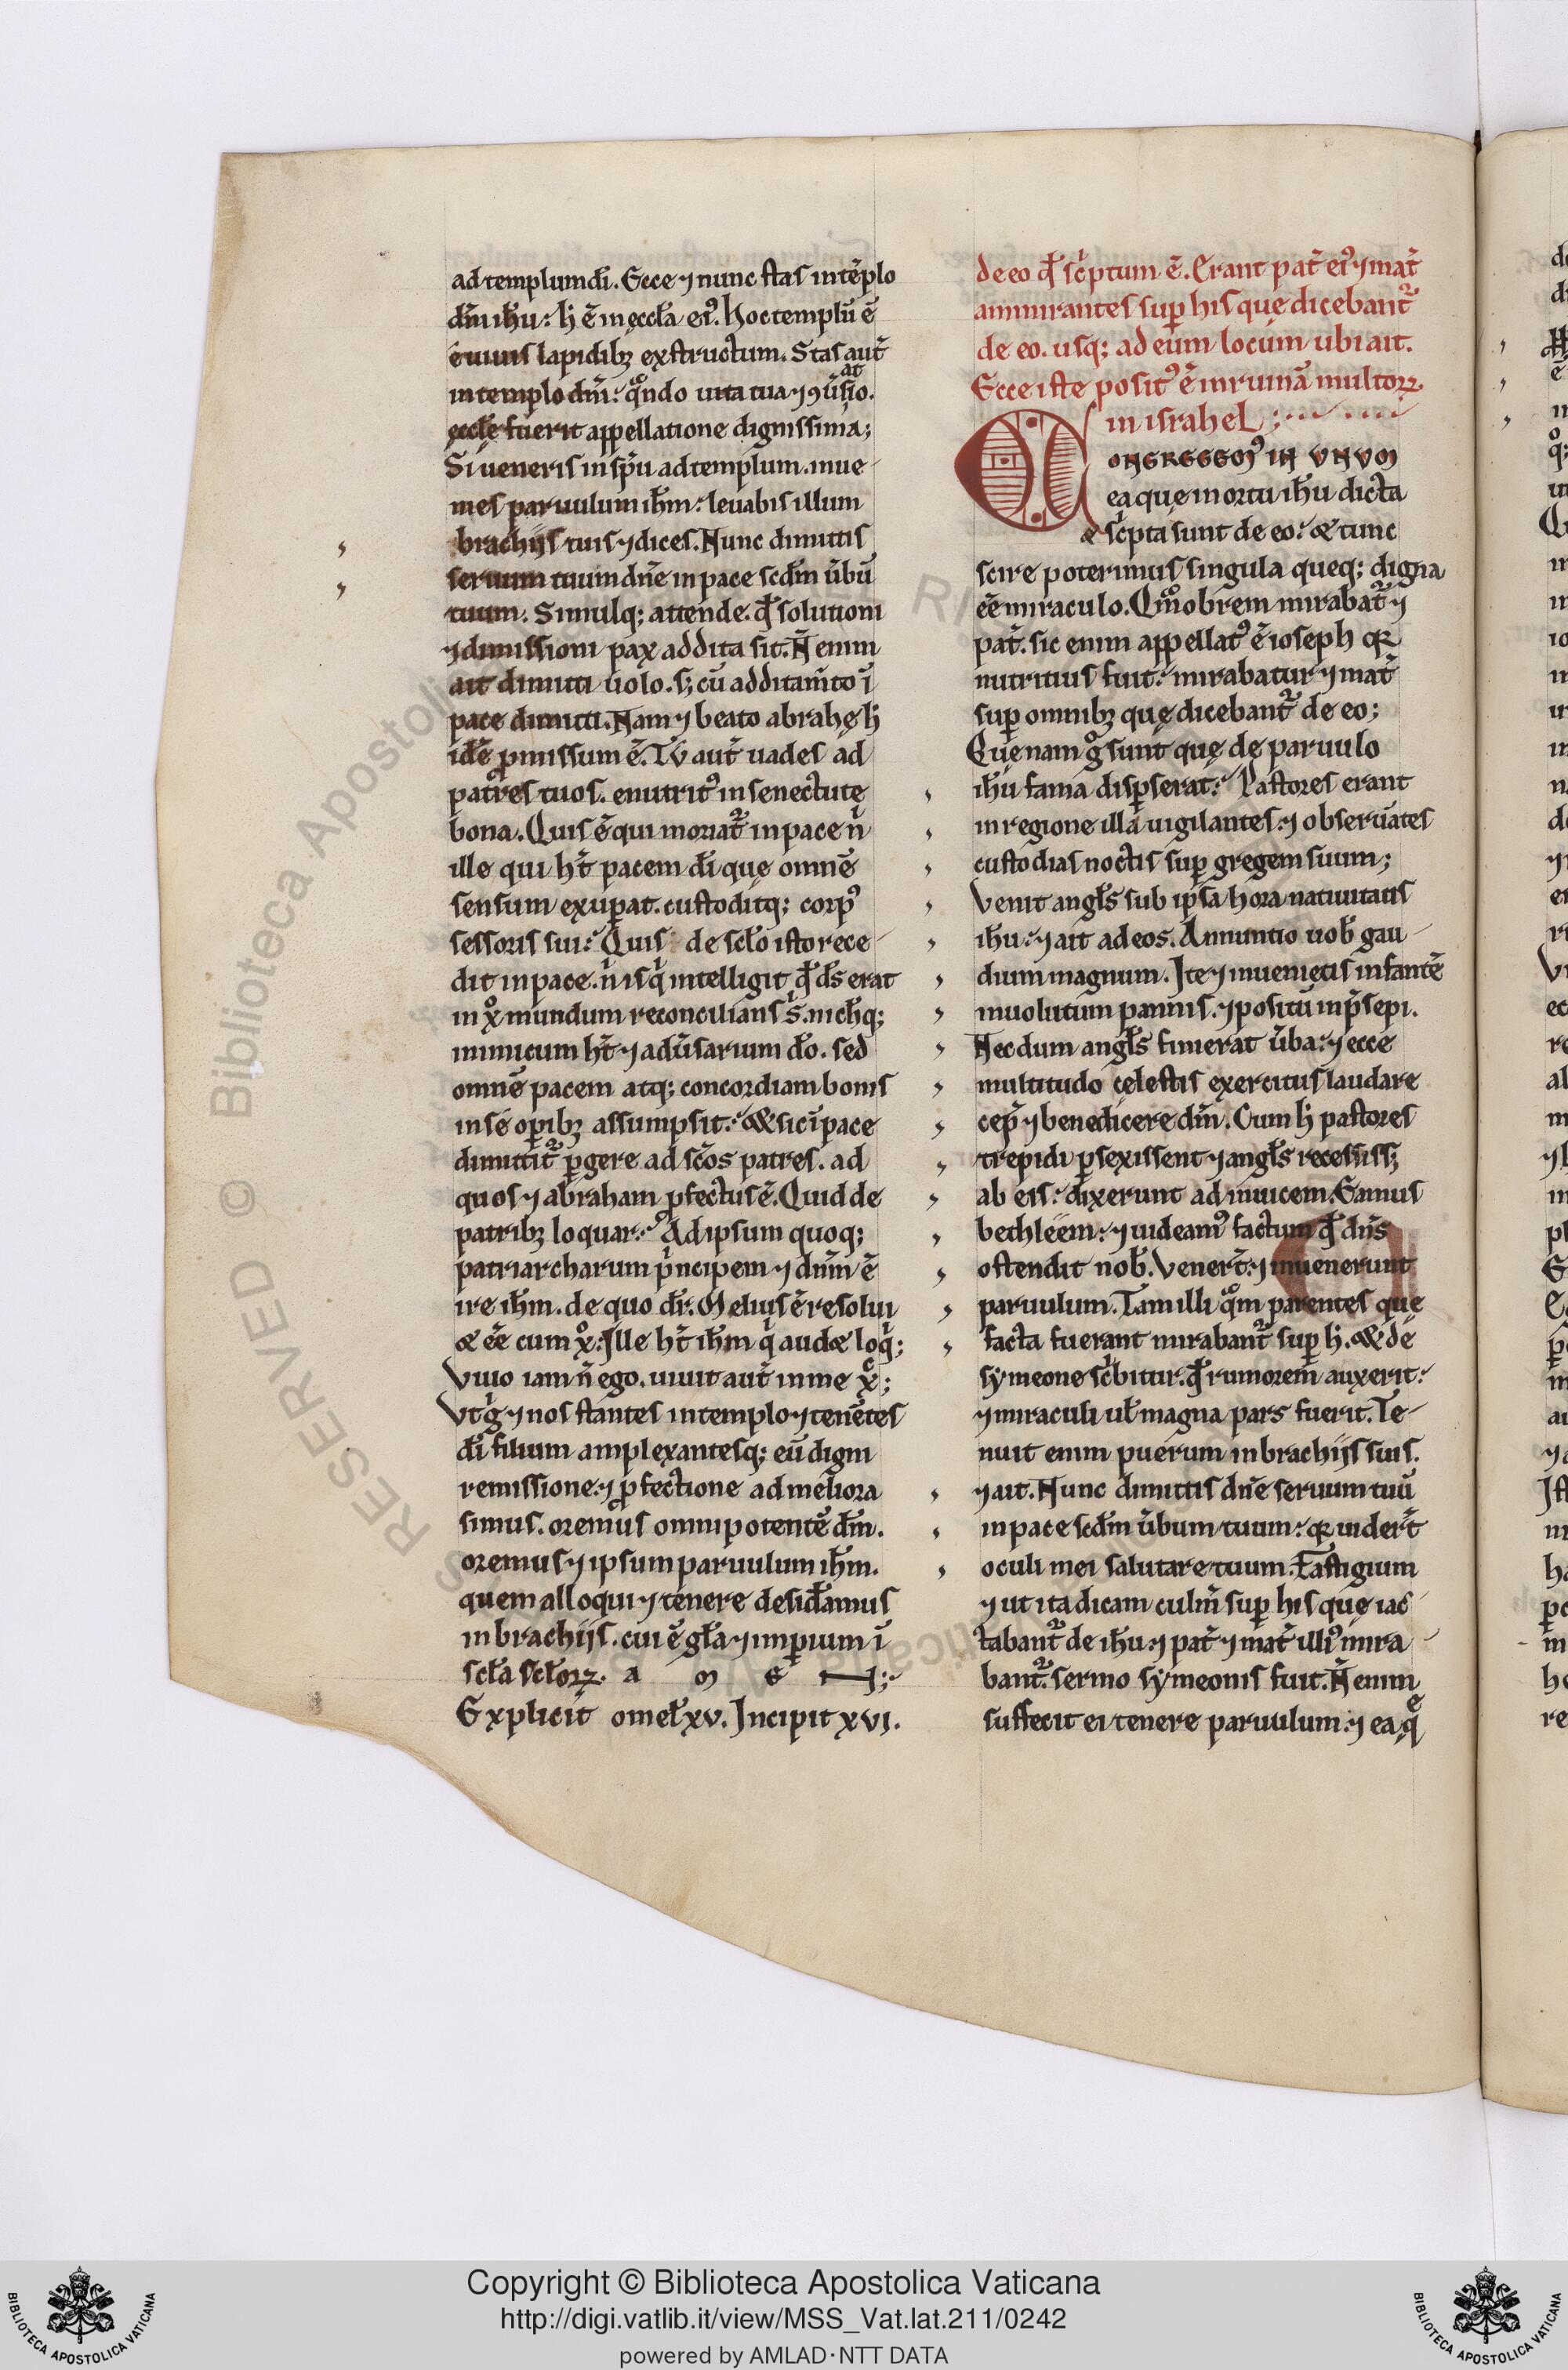 ad templum dī. Ecce ⁊ nunc stas in tēplo
dn̄i ih̄u: h̓ ē in ęccl̄a ei᷒. Hoc templū ē
e uiuis lapidib; exstructum. Stas aut̄
in templo dn̄i: qn̊do uita tua ⁊ ꝯūsatio.
ęccl̄e fuerit appellatione dignissima;
Si ueneris in sp̄u ad templum. inue-
nies paruulum ih̄m: leuabis illum
brachijs tuis ⁊ dices. Nunc dimittis
seruum tuum dn̄e in pace scd̄m ūbū
tuum. Simulq; attende. qđ solutioni
⁊ dimissioni pax addita sit. N̄ enim
ait dimitti uolo. s; cū additam̄to ī
pace dimitti. Nam ⁊ beato abrahę h̓
idē ꝓmissum ē. Tv aut̄ uades ad
patres tuos. enutrit᷒ in senectute
bona. Quis ē qui moriat᷑ in pace nͥ
ille qui ht̄ pacem dī que omnē
sensum exuꝑat. custoditq; corp᷒
sessoris sui? Quis de scl̄o isto rece-
dit in pace. nͥ is qͥ intelligit qđ ds̄ erat
in xͦ mundum reconcilians s̄. nich̄q;
inimicum ht̄ ⁊ adūsarium dō. sed
omnē pacem atq; concordiam bonis
in se oꝑib; assumpsit? & sic ī pace
dimittit᷑ ꝑgere ad sc̄os patres. ad
quos ⁊ abraham ꝓfectus ē. Quid de
patrib; loquar? Ad ipsum quoq;
patriarcharum pͥncipem ⁊ dn̄m ē
ire ih̄m. de quo dr̄. Meliuͥs ē resolui
& eē cum xͦ: Ille ht̄ ih̄m qͥ aud& loqͥ;
Viuo iam n̄ ego. uiuit aut̄ in me xͨ;
Vt gͥ ⁊ nos stantes in templo ⁊ tenētes
dī filium amplexantesq; eū digni
remissione: ⁊ ꝓfectione ad meliora
simus. oremus omnipotentē dm̄.
oremus ⁊ ipsum paruulum ih̄m.
quem alloqui ⁊ tenere desiđamus
in brachijs. cui ē gl̄a ⁊ imꝑium ī
scl̄a scl̄oꝝ. a m e N;
Explicit omel̄ xv. Incipit xvi.
de eo qđ scͥptum ē. Erant pat̄ ei᷒ ⁊ mat̄
ammirantes suꝑ his que dicebant᷑
de eo. usq; ad eum locum ubi ait.
Ecce iste posit᷒ ē in ruinā multoꝝ
in israhel;
CONGREGEM᷒ IN VNVM
ea quę in ortu ih̄u dicta
& scͥpta sunt de eo: & tunc
scire poterimus singula queq; digna
eē miraculo. Qm̊obrem mirabat᷑ ⁊
pat̄. sic enim appellat᷒ ē ioseph qꝛ
nutritius fuit: mirabatur ⁊ mat̄
suꝑ omnib; quę dicebant᷑ de eo;
Quęnam gͦ sunt quę de paruulo
ih̄u fama disꝑserat? Pastores erant
in regione illa uigilantes: ⁊ obseruātes
custodias noctis suꝑ gregem suum;
Venit angl̄s sub ipsa hora natiuitatis
ih̄u: ⁊ ait ad eos. Annuntio uob̄ gau-
dium magnum. Ite ⁊ inuenietis infantē
inuolutum pannis. ⁊ positū in p̄sepi.
Necdum angl̄s finierat ūba: ⁊ ecce
multitudo cęlestis exercitus laudare
cep̄ ⁊ benedicere dm̄. Cum h̓ pastores
trepidi ꝑsexissent ⁊ angl̄s recessiss;
ab eis: dixerunt ad inuicem. Eamus
bethleem: ⁊ uideam᷒ factum qđ dn̄s
ostendit nob̄. Venert̄: ⁊ inuenerunt
paruulum. Tam illi qm̊ parentes que
facta fuerant mirabant᷑ suꝑ h̓. & de
symeone scͥbitur. qđ rumorem auxerit:
⁊ miraculi ul̄ magna pars fuerit. Te-
nuit enim puerum in brachijs suis.
⁊ ait. Nunc dimittis dn̄e seruum tuū
in pace scd̄m ūbum tuum: qꝛ uidert̄
oculi mei salutare tuum. Fastigium
⁊ ut ita dicam culm̄ suꝑ his que iac-
tabant᷑ de ih̄u: ⁊ pat̄ ⁊ mat̄ illi᷒ mira-
bant᷑. sermo symeonis fuit. N̄ enim
suffecit ei tenere paruulum: ⁊ ea qͤ
Copyright © Biblioteca Apostolica Vaticana
http://digi.vatlib.it/view/MSS_Vat.lat.211/0242
powered by AMLAD·NTT DATA